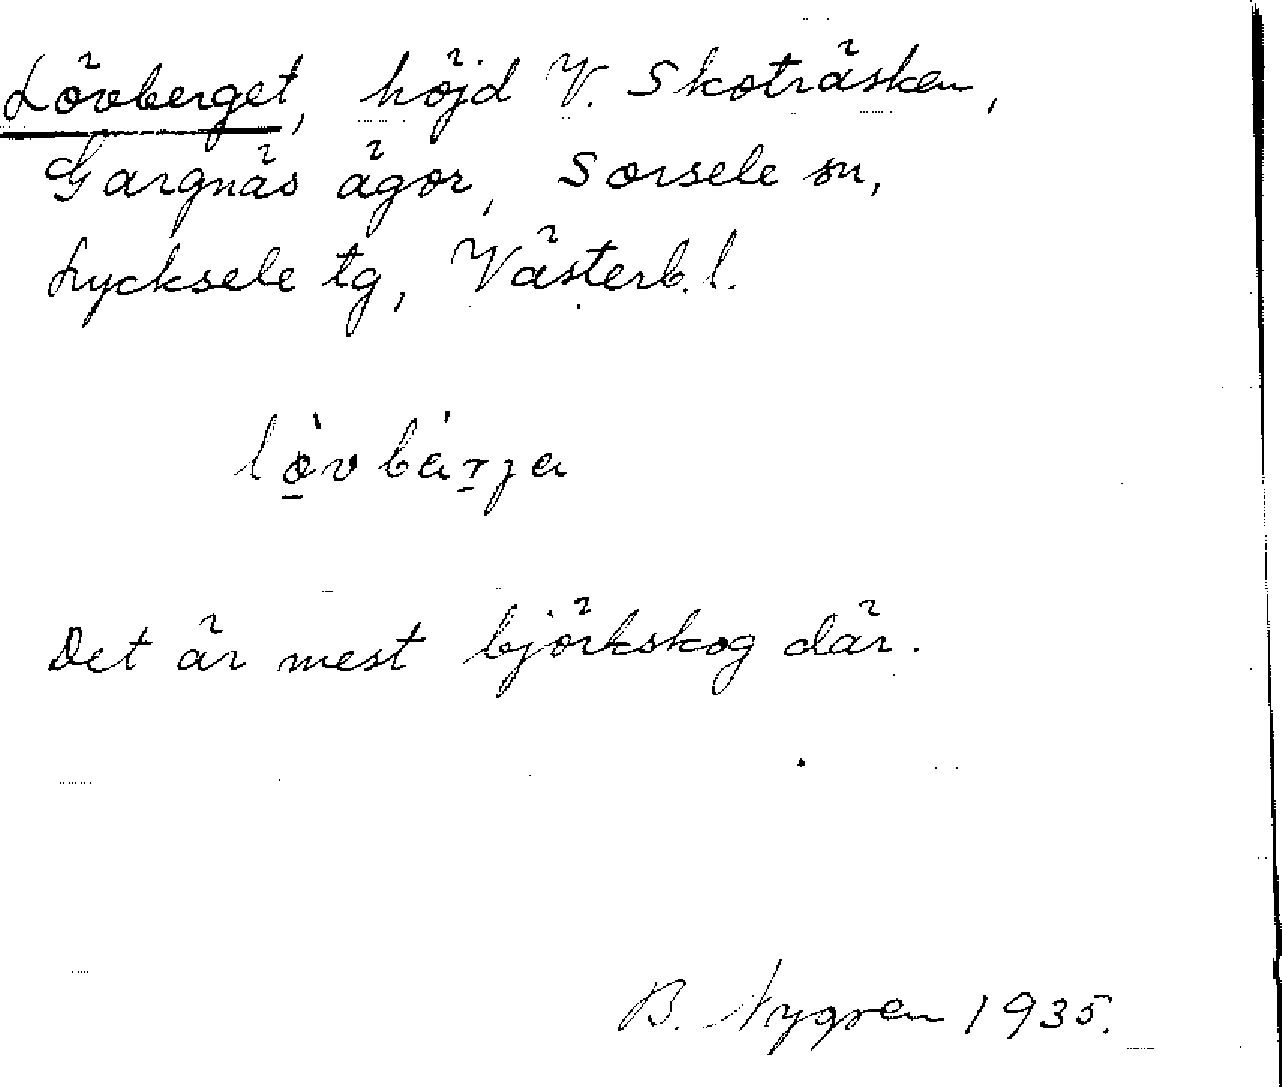 Lövberget, höjd V. Skoträsken,
Gargnäs ägor, Sorsele sn,
Lycksele tg, Västerb. l.
lò̲vbár̲ja
Det är mest björkskog där.
B. Nygren 1935.